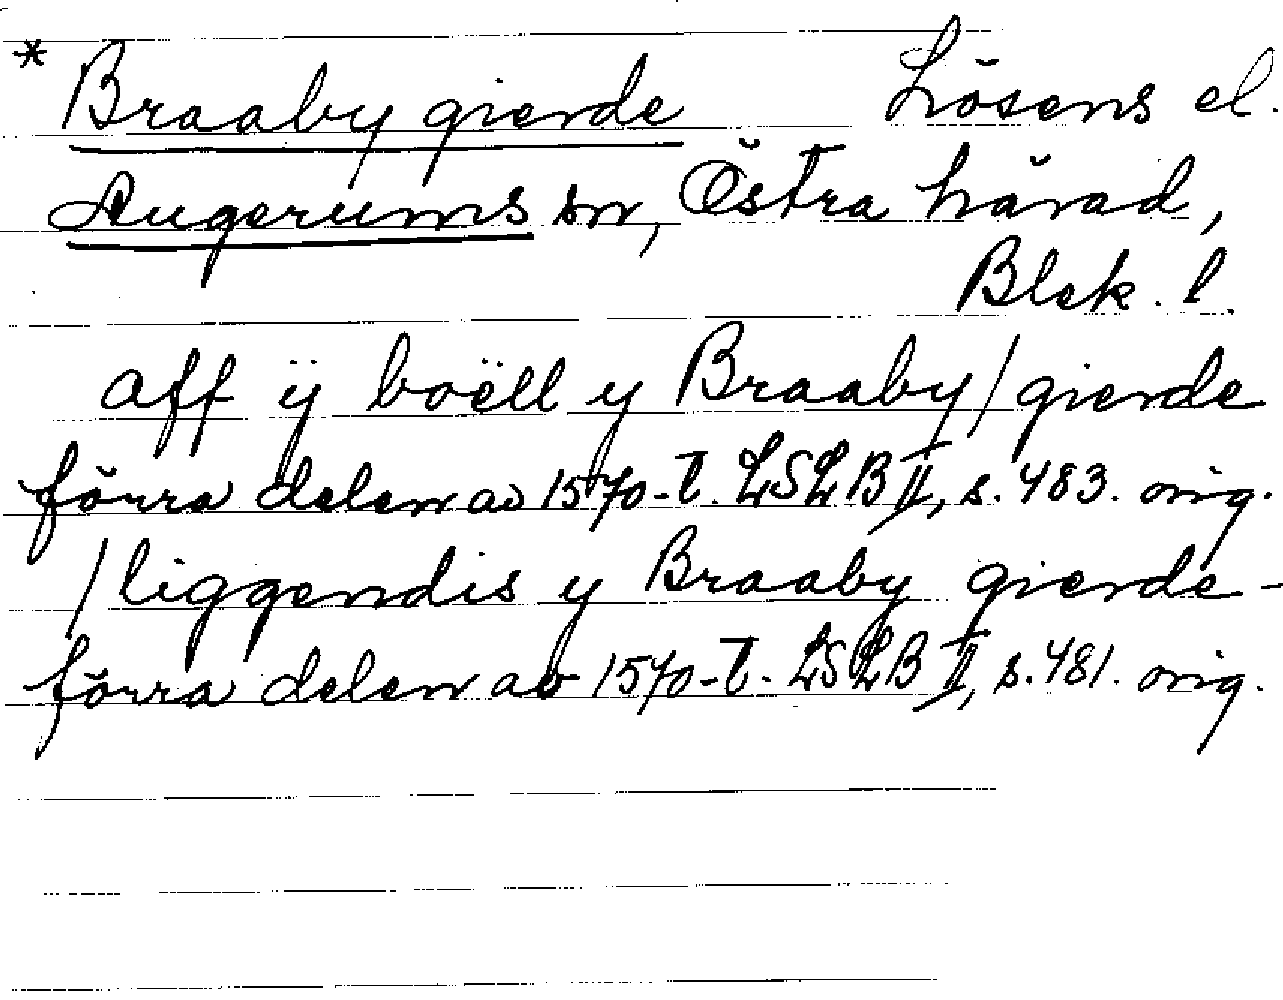 * Braaby gierde Lösens el.
Augerums sn, Östra härad,
Blek. l.
aff ÿ boëll y Braaby/gierde
förra delen av 1570-t. LSLB II, s. 483. orig.
/liggendis y Braaby gierde-
förra delen av 1570-t. LSLB II, s. 481. orig.